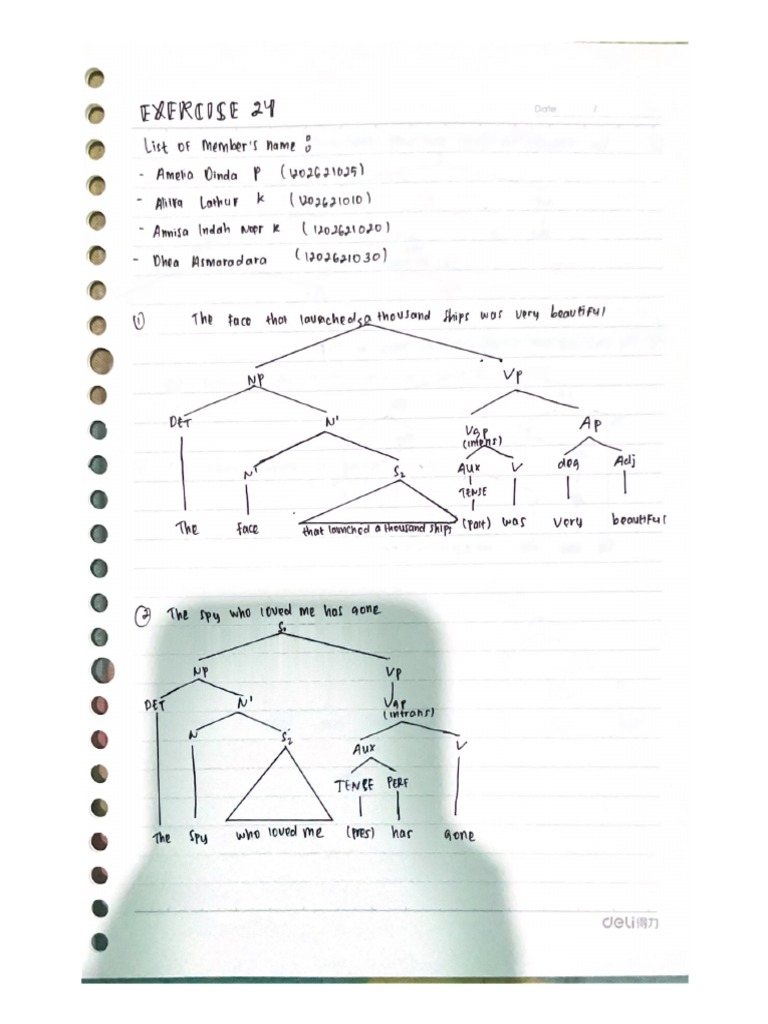 EXERCISE 24
Date /
List of Member's name :
- Amelia Dinda P (1202621025)
- Lathur K (1202621010)
- Annisa Indah Noor K (1202621020)
- Dhea Asmaradara (1202621030)
① The face that launched a thousand ships was very beautiful
S1
NP VP
DET N' Vgp AP
(intens)
N' S2 AUX V deg Adj
TENSE
The face that launched a thousand ships (past) was very beautiful
② The spy who loved me has gone
S1
NP VP
DET N' Vgp
(intrans)
N S2 Aux V
TENSE PERF
The spy who loved me (pres) has gone
deli得力